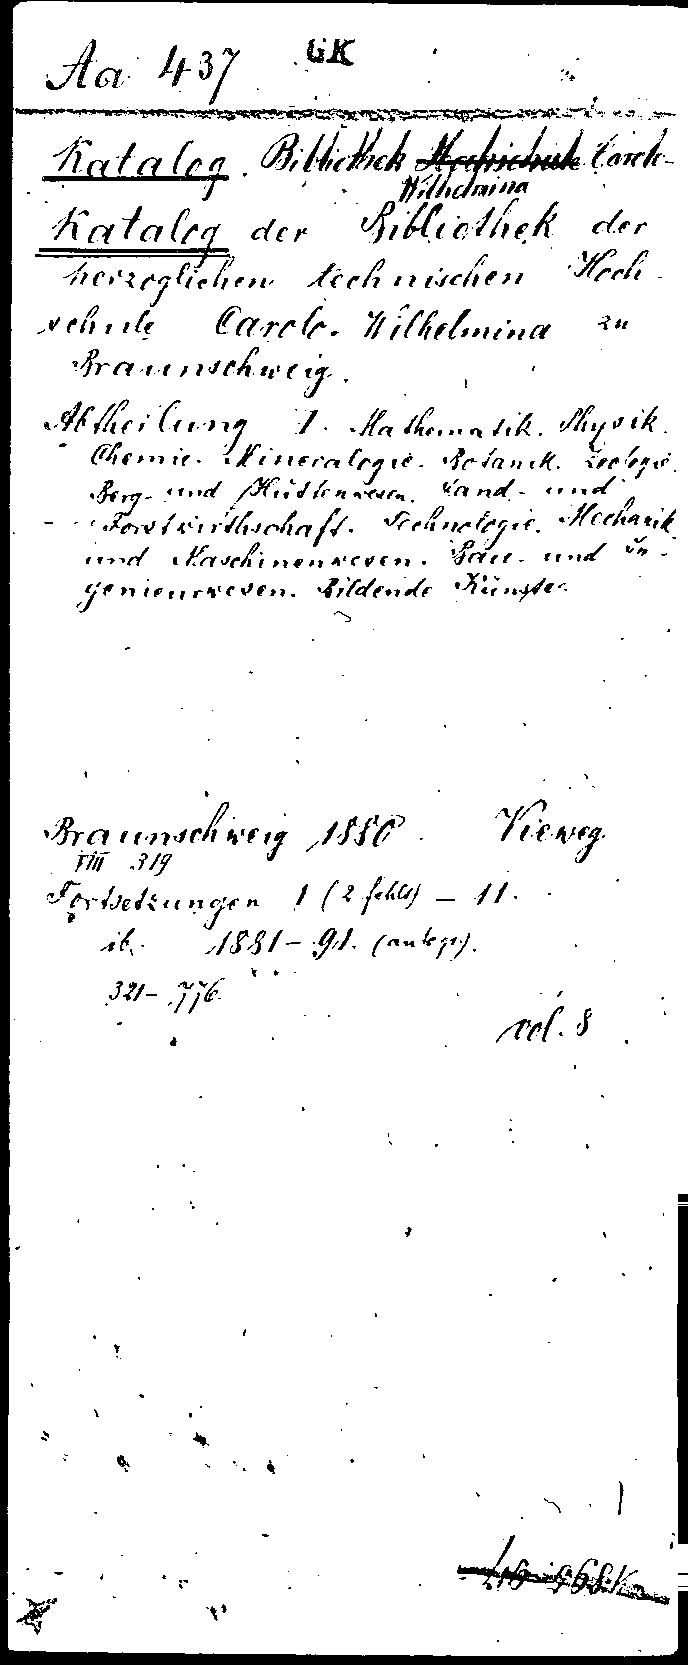 Aa 437 GK
Katalog. Bibliothek Hochschule Carolo-
Wilhelmina
Katalog der Bibliothek der
herzoglichen technischen Hoch-
schule Carolo-Wilhelmina zu
Braunschweig.
Abtheilung I. Mathematik. Physik.
Chemie. Mineralogie. Botanik. Zoologie.
Berg- und Hüttenwesen. Land- und
Forstwirthschaft. Technologie. Mechanik
und Maschinenwesen. Bau- und In-
genieurwesen. Bildende Künste.
Braunschweig 1880. Vieweg.
VIII 319
Fortsetzungen 1 (2 fehlt) – 11.
ib. 1881–91. (autogr).
321–776.
vol. 8